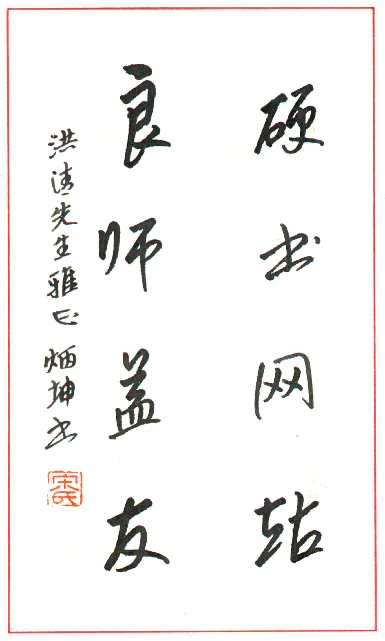 硬书网站
良师益友
洪涛先生雅正 炳坤书
宋氏